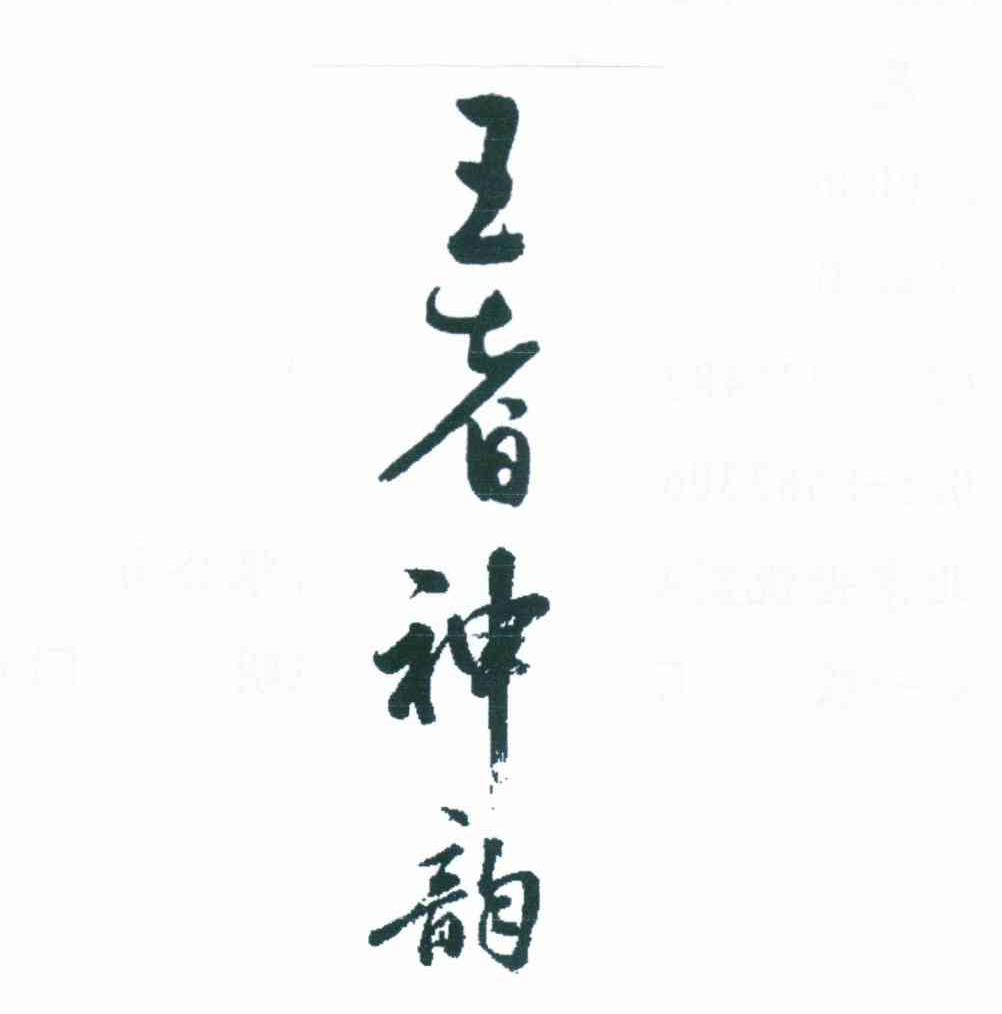 王者神韵